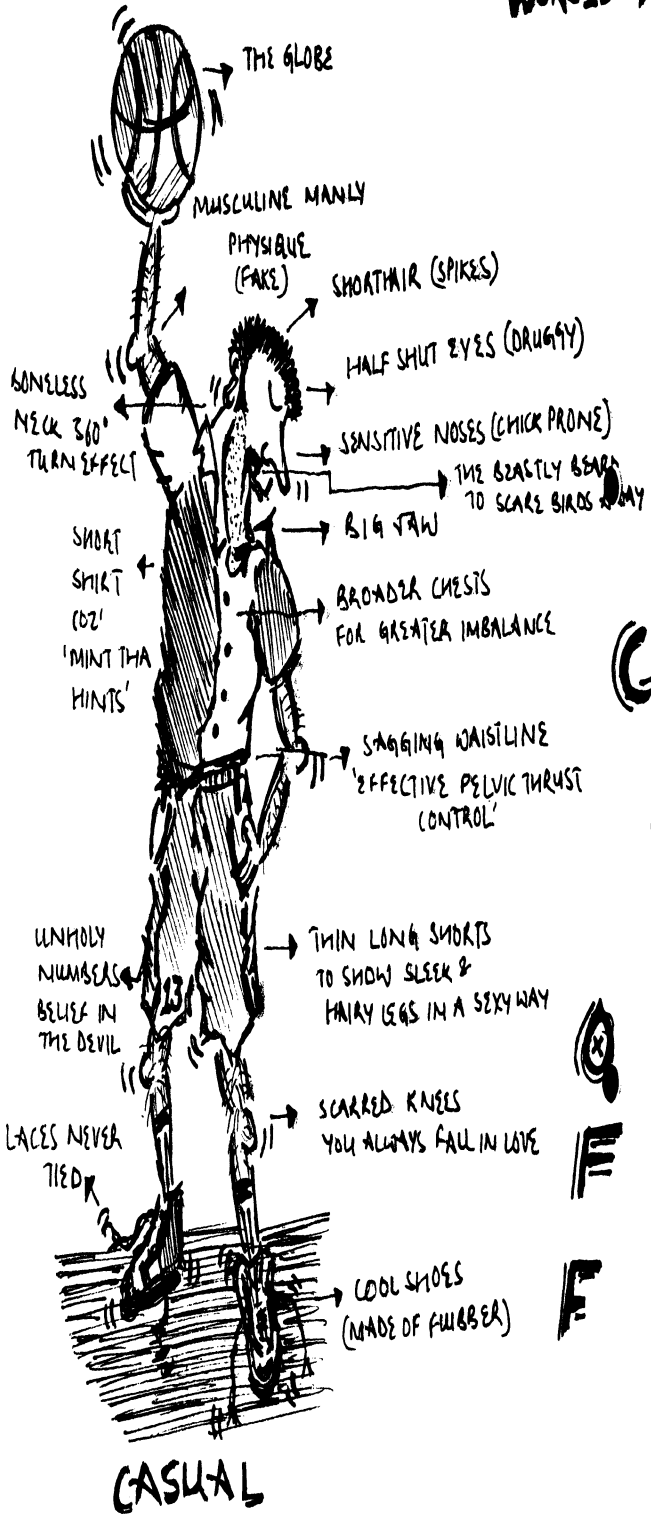 THE GLOBE
MUSCULINE MANLY
PHYSIQUE
(FAKE)
SHORTHAIR (SPIKES)
HALF SHUT EYES (DRUGGY)
BONELESS
NECK 360°
TURN EFFECT
SENSITIVE NOSES (CHICK PRONE)
THE BEASTLY BEARD
TO SCARE BIRDS AWAY
BIG JAW
SHORT
SHIRT
COZ'
'MINT THA
HINTS'
BROADER CHESTS
FOR GREATER IMBALANCE
SAGGING WAISTLINE
'EFFECTIVE PELVIC THRUST
CONTROL'
UNHOLY
NUMBERS
BELIEF IN
THE DEVIL
13
THIN LONG SHORTS
TO SHOW SLEEK &
HAIRY LEGS IN A SEXY WAY
SCARRED KNEES
YOU ALWAYS FALL IN LOVE
LACES NEVER
TIED
COOL SHOES
(MADE OF FLUBBER)
F
F
CASUAL